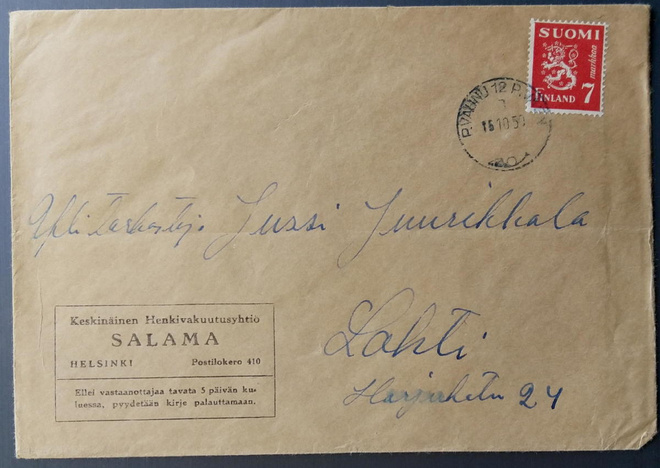 SUOMI
markkaa
FINLAND 7
P.VAUNU 12 P.V
15.10.50
Jussi Juurikkala
Lahti
Harjukatu 24
Keskinäinen Henkivakuutusyhtiö
SALAMA
HELSINKI Postilokero 410
Ellei vastaanottajaa tavata 5 päivän ku-
luessa, pyydetään kirje palauttamaan.